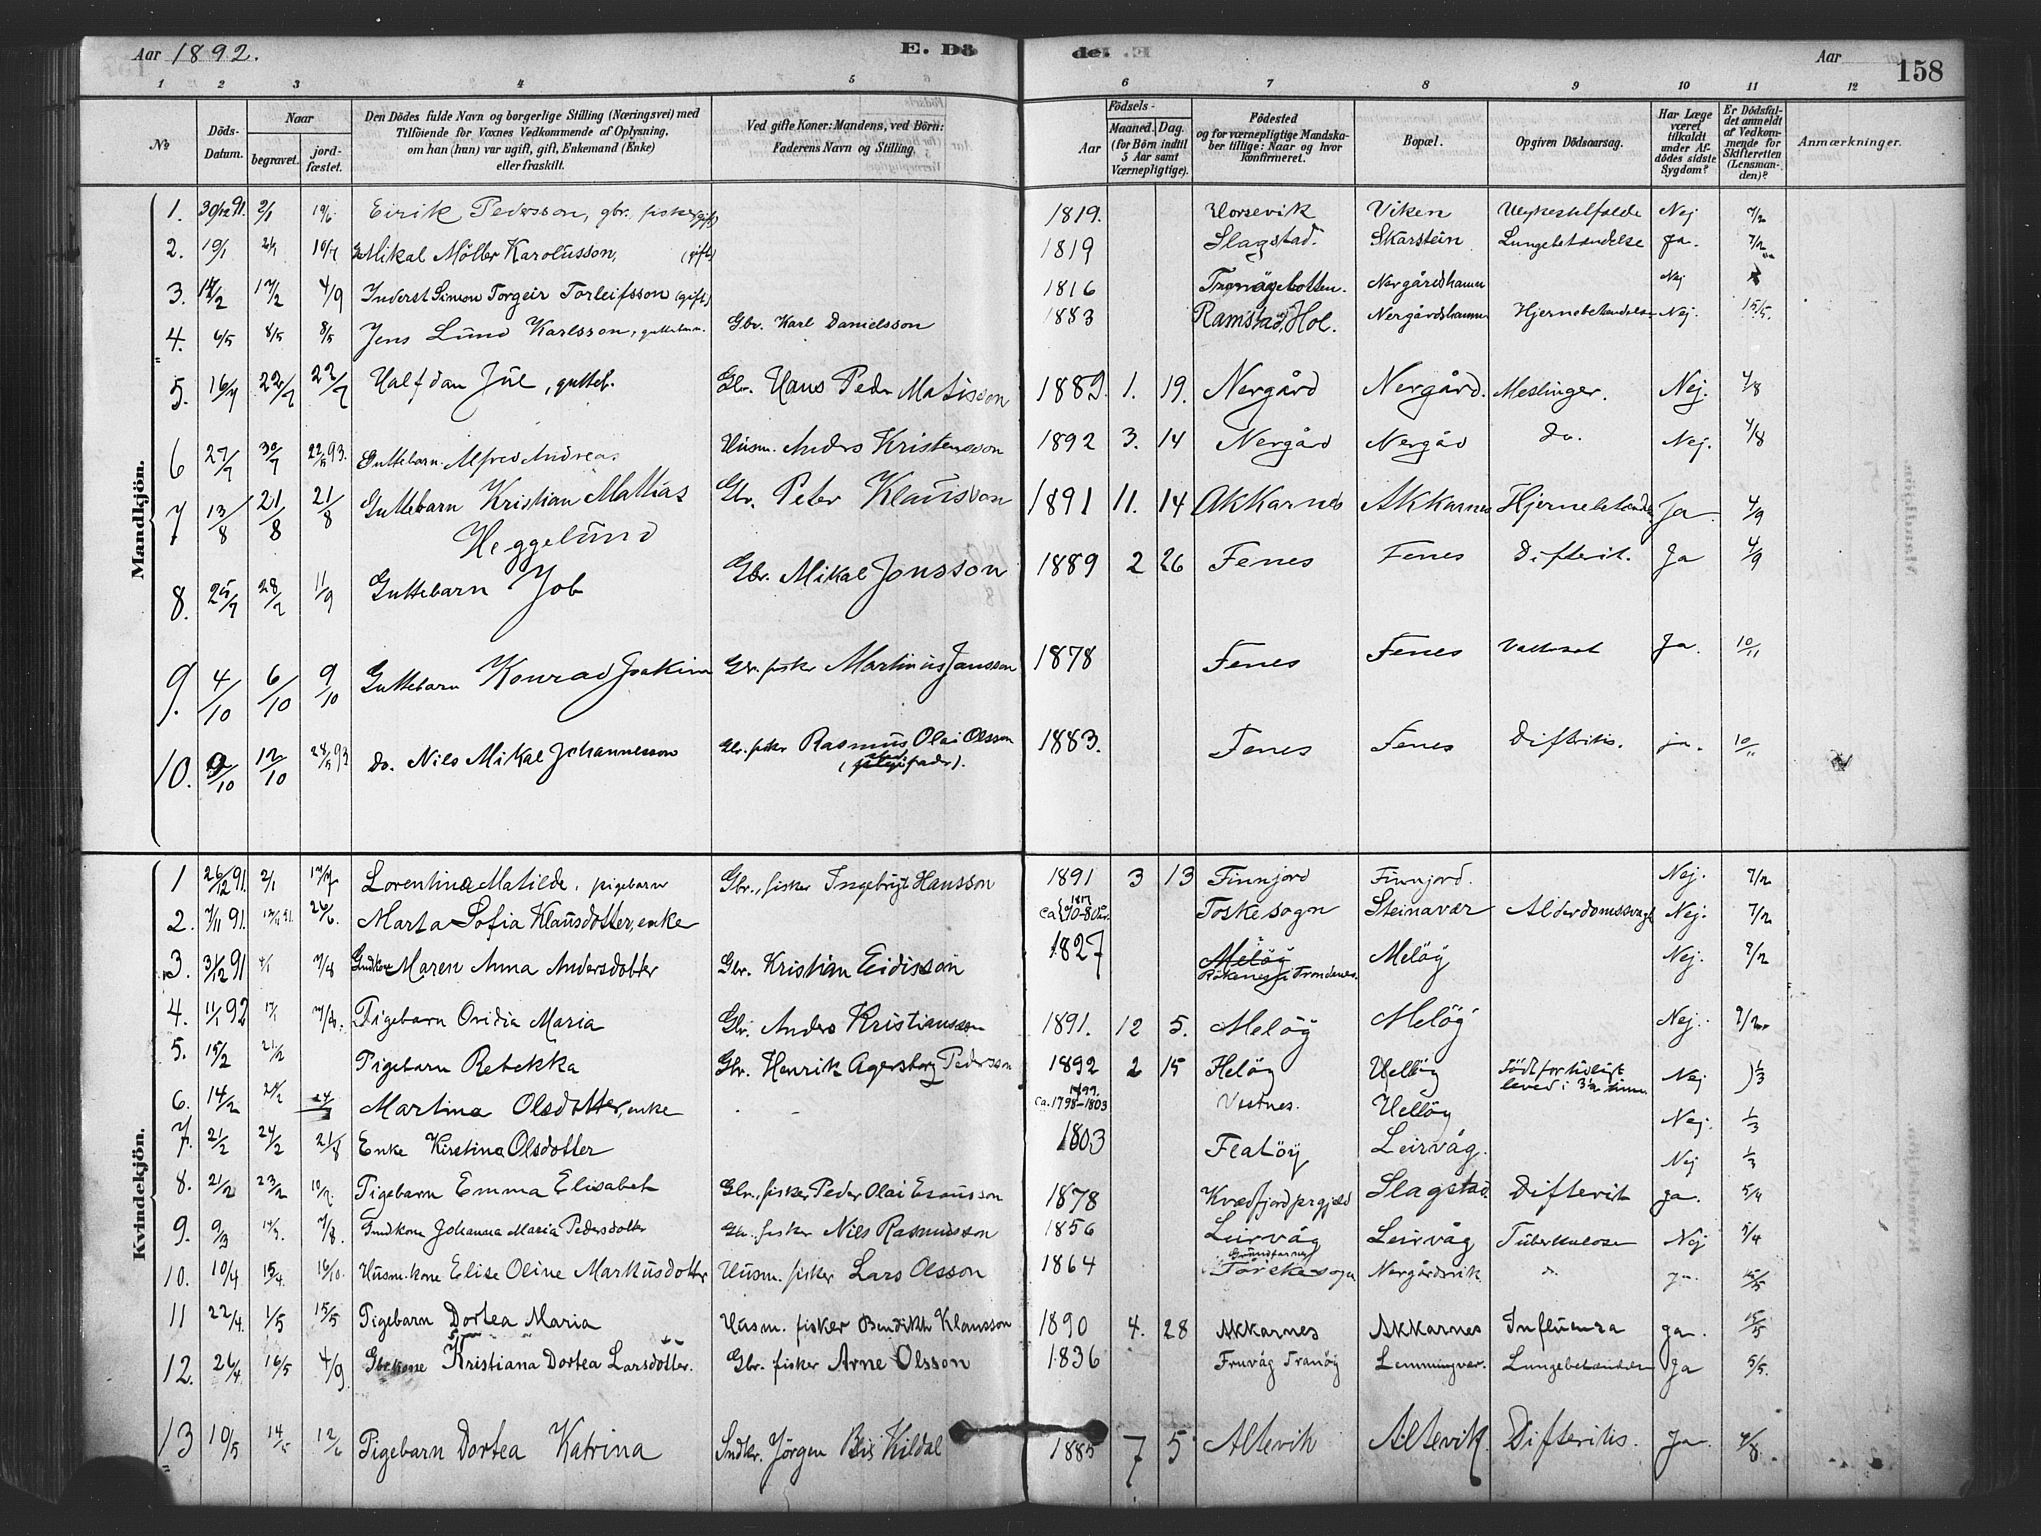 Aar 1892.
E. Dö
de.
Aar
158
1 2 3 4 5 6 7 8 9 10 11 12
No
Döds-Datum.
Naar
begravet.
jord-fæstet.
Den Dödes fulde Navn og borgerlige Stilling (Næringsvei) med
Tilföiende for Voxnes Vedkommende af Oplysning,
om han (hun) var ugift, gift, Enkemand (Enke)
eller fraskilt.
Ved gifte Koner: Mandens, ved Börn:
Faderens Navn og Stilling.
Födsels-
Aar
Maaned. Dag.
(for Börn indtil
5 Aar samt
Værnepligtige).
Födested
og for værnepligtige Mandska-
ber tillige: Naar og hvor
konfirmeret.
Bopæl.
Opgiven Dödsaarsag.
Har Læge
været
tilkaldt
under Af-
dödes sidste
Sygdom?
Er Dödsfal-
det anmeldt
af Vedkom-
mende for
Skifteretten
(Lensman-
den)?
Anmærkninger.
Mandkjön.
1. 30/12 91. 2/1 19/6 Eirik Pedersson, gbr., fisker (gift) 1819. Vorsevik Viken Nej 7/2
2. 19/1 10/7 Mikal Möller Karolusson, (gift) 1819 Slagstad. Skarstein Lungebetændelse Ja. 7/2
3. 17/2 4/9 Inderst Simon Torgeir Torleifsson (gift) 1816 Nergårdshamn Nej
4. 6/5 8/5 8/5 Jens Lund Karlsson, guttebarn. Gbr. Karl Danielsson 1883 Ramstad, Hol. Nergårdshamn Hjernebetændelse Nej. 15/5.
5. 16/7 22/7 22/7 Halfdan Jül, gutteb. Gbr. Hans Peder Matisson 1889. 1. 19. Nergård Nergård. Meslinger. Nej. 4/8
6 27/7 30/7 22/5 93. Guttebarn Alfred Andreas Husm. Anders Kristensson 1892 3. 14 Nergård Nergård Do. Nej. 4/8
7 13/8 21/8 21/8 Guttebarn Kristian Mattias Heggelund Gbr. Peter Klausson 1891 11. 14 Akkarnes Akkarnes Hjernebetænd Ja 4/9
8. 25/7 28/7 11/9 Guttebarn Job Gbr. Mikal Jonsson 1889 2 26 Fenes Fenes Difterit. Ja 4/9
9. 4/10 6/10 9/10 Guttebarn Konrad Joakim Gbr. fisker Martinus Jansson 1878 Fenes Fenes Vattersot Ja. 10/11
10. 9/10 12/10 28/5 93 do. Nils Mikal Johannesson Gbr. fisker Rasmus Olai Olsson 1883. Fenes Fenes Difteritis. ja. 10/11
Kvindekjön.
1 26/12 91. 2/1 17/7 Lorentine Matilde, pigebarn Gbr., fisker Ingebrigt Hansson 1891 3 13 Finnjord Finnjord. Nej. 7/2
2. 7/11 91. 26/6. Marta Sofia Klausdotter, enke ca. 70-80 Toskesogn Steinavær Alderdomssvagh Nej. 7/2
3. 31/12 91 4/1 7/8 Gmdkone Maren Anna Andersdotter Gbr. Kristian Eidisson 1827 Melöy Rökenes i Trondenes. Melöy Nej. 7/2
4. 11/1 92 17/1 Pigebarn Ovidia Maria Gbr. Anders Kristiansson 1891. 12 5. Melöy Melöy Nej. 7/2
5. 15/2 21/2 Pigebarn Rebekka Gbr. Henrik Agersborg Pedersson 1892 2 15 Helöy Helöy Födt for tidligt leved i 3½ time Nej 1/3
6. 14/2 Martine Olsdotter, enke 1799. ca. 1798-1803 Vestnes. Helöy Nej. 1/3
7. 21/2 24/2 21/8 Enke Kirstina Olsdotter 1803 Flatöy Leirvåg. Nej 1/3
8. 21/2 23/2 10/7. Pigebarn Emma Elisabet Gbr., fisker Peder Olai Esausson 1878 Kvædfjord prgjæld Slagstad Difterit ja. 5/4
9. 9/3 7/8. Gmdkone Johanna Maria Pedersdotter Gbr. fisker Nils Rasmusson 1856 Leirvåg Leirvåg Tuberkulose Nej 5/4
10. 10/4 15/4 16/10. Husm.kone Elise Oline Markusdotter Husm. fisker Lars Olsson 1864 Grundfarnes Torskesogn Nergårdsvik do ja. 15/5
11 22/4. 1/5 15/5 Pigebarn Dortea Maria Husm. fisker Bendikt Klausson 1890 4. 28 Akkarnes Akkarnes Influenza ja. 15/5
12. 26/4 16/5 4/9. Gbr.kone Kristiana Dortea Larsdotter. Gbr. fisker Arne Olsson 1836 Fruvåg Tranöy Lemmingvær. Lungebetændelse Ja 5/5.
13 10/5 14/5 12/6 Pigebarn Dortea Katrina Jörgen Bis Kildal 1885 7 5 Altevik Altevik. Difteritis. Ja. 4/8.